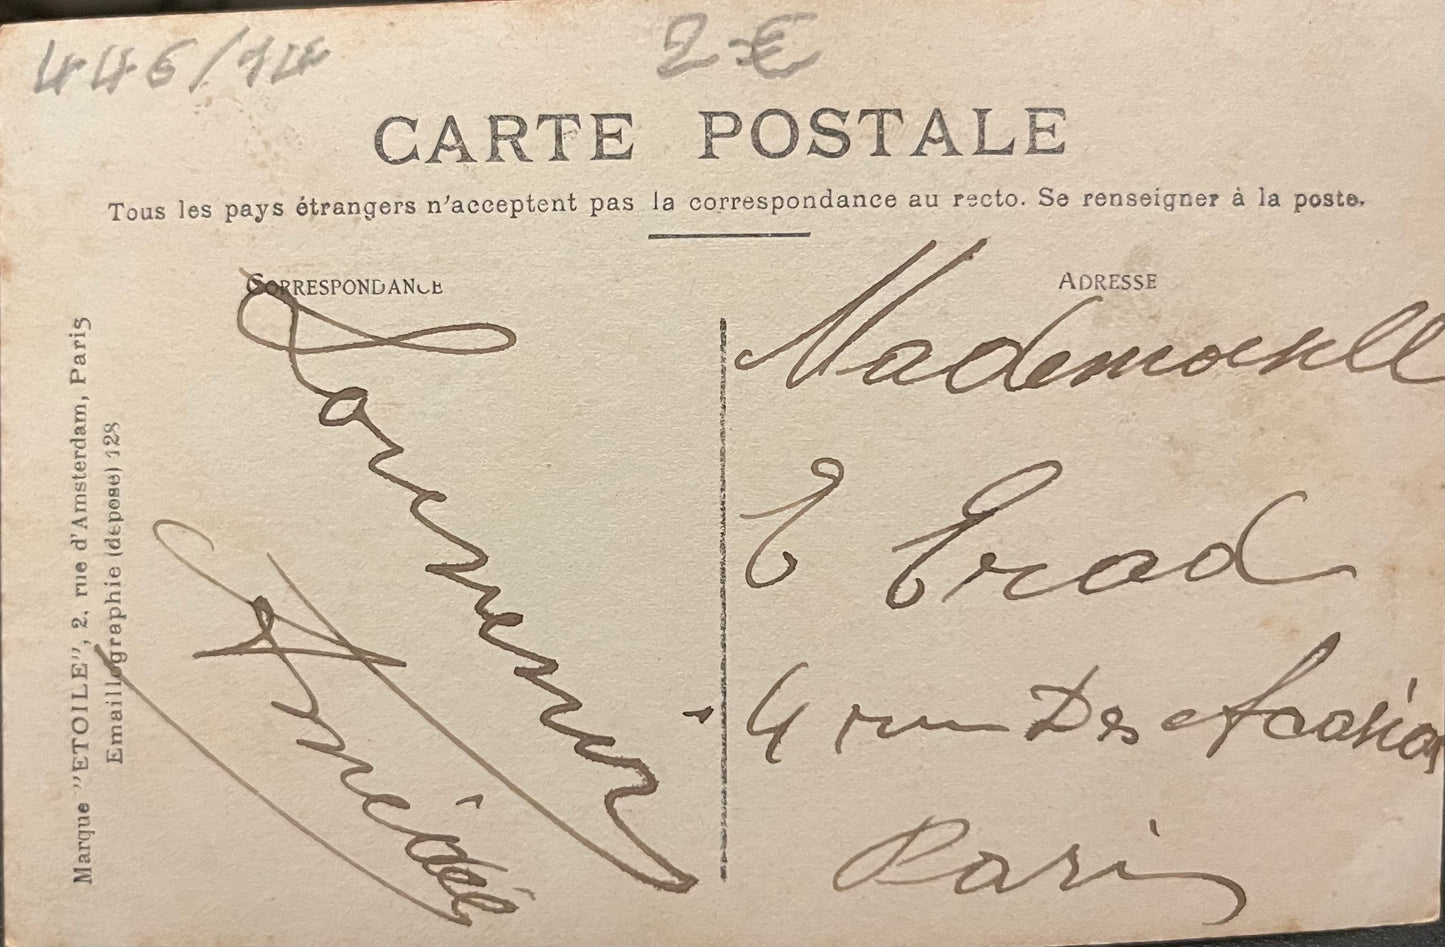 446/14
2 €
CARTE POSTALE
Tous les pays étrangers n'acceptent pas la correspondance au recto. Se renseigner à la poste.
CORRESPONDANCE
Amédée
ADRESSE
Mademoiselle
E
4 rue Des Acasias
Paris
Marque "ETOILE", 2, rue d'Amsterdam, Paris
Emaillographie (déposé) 128